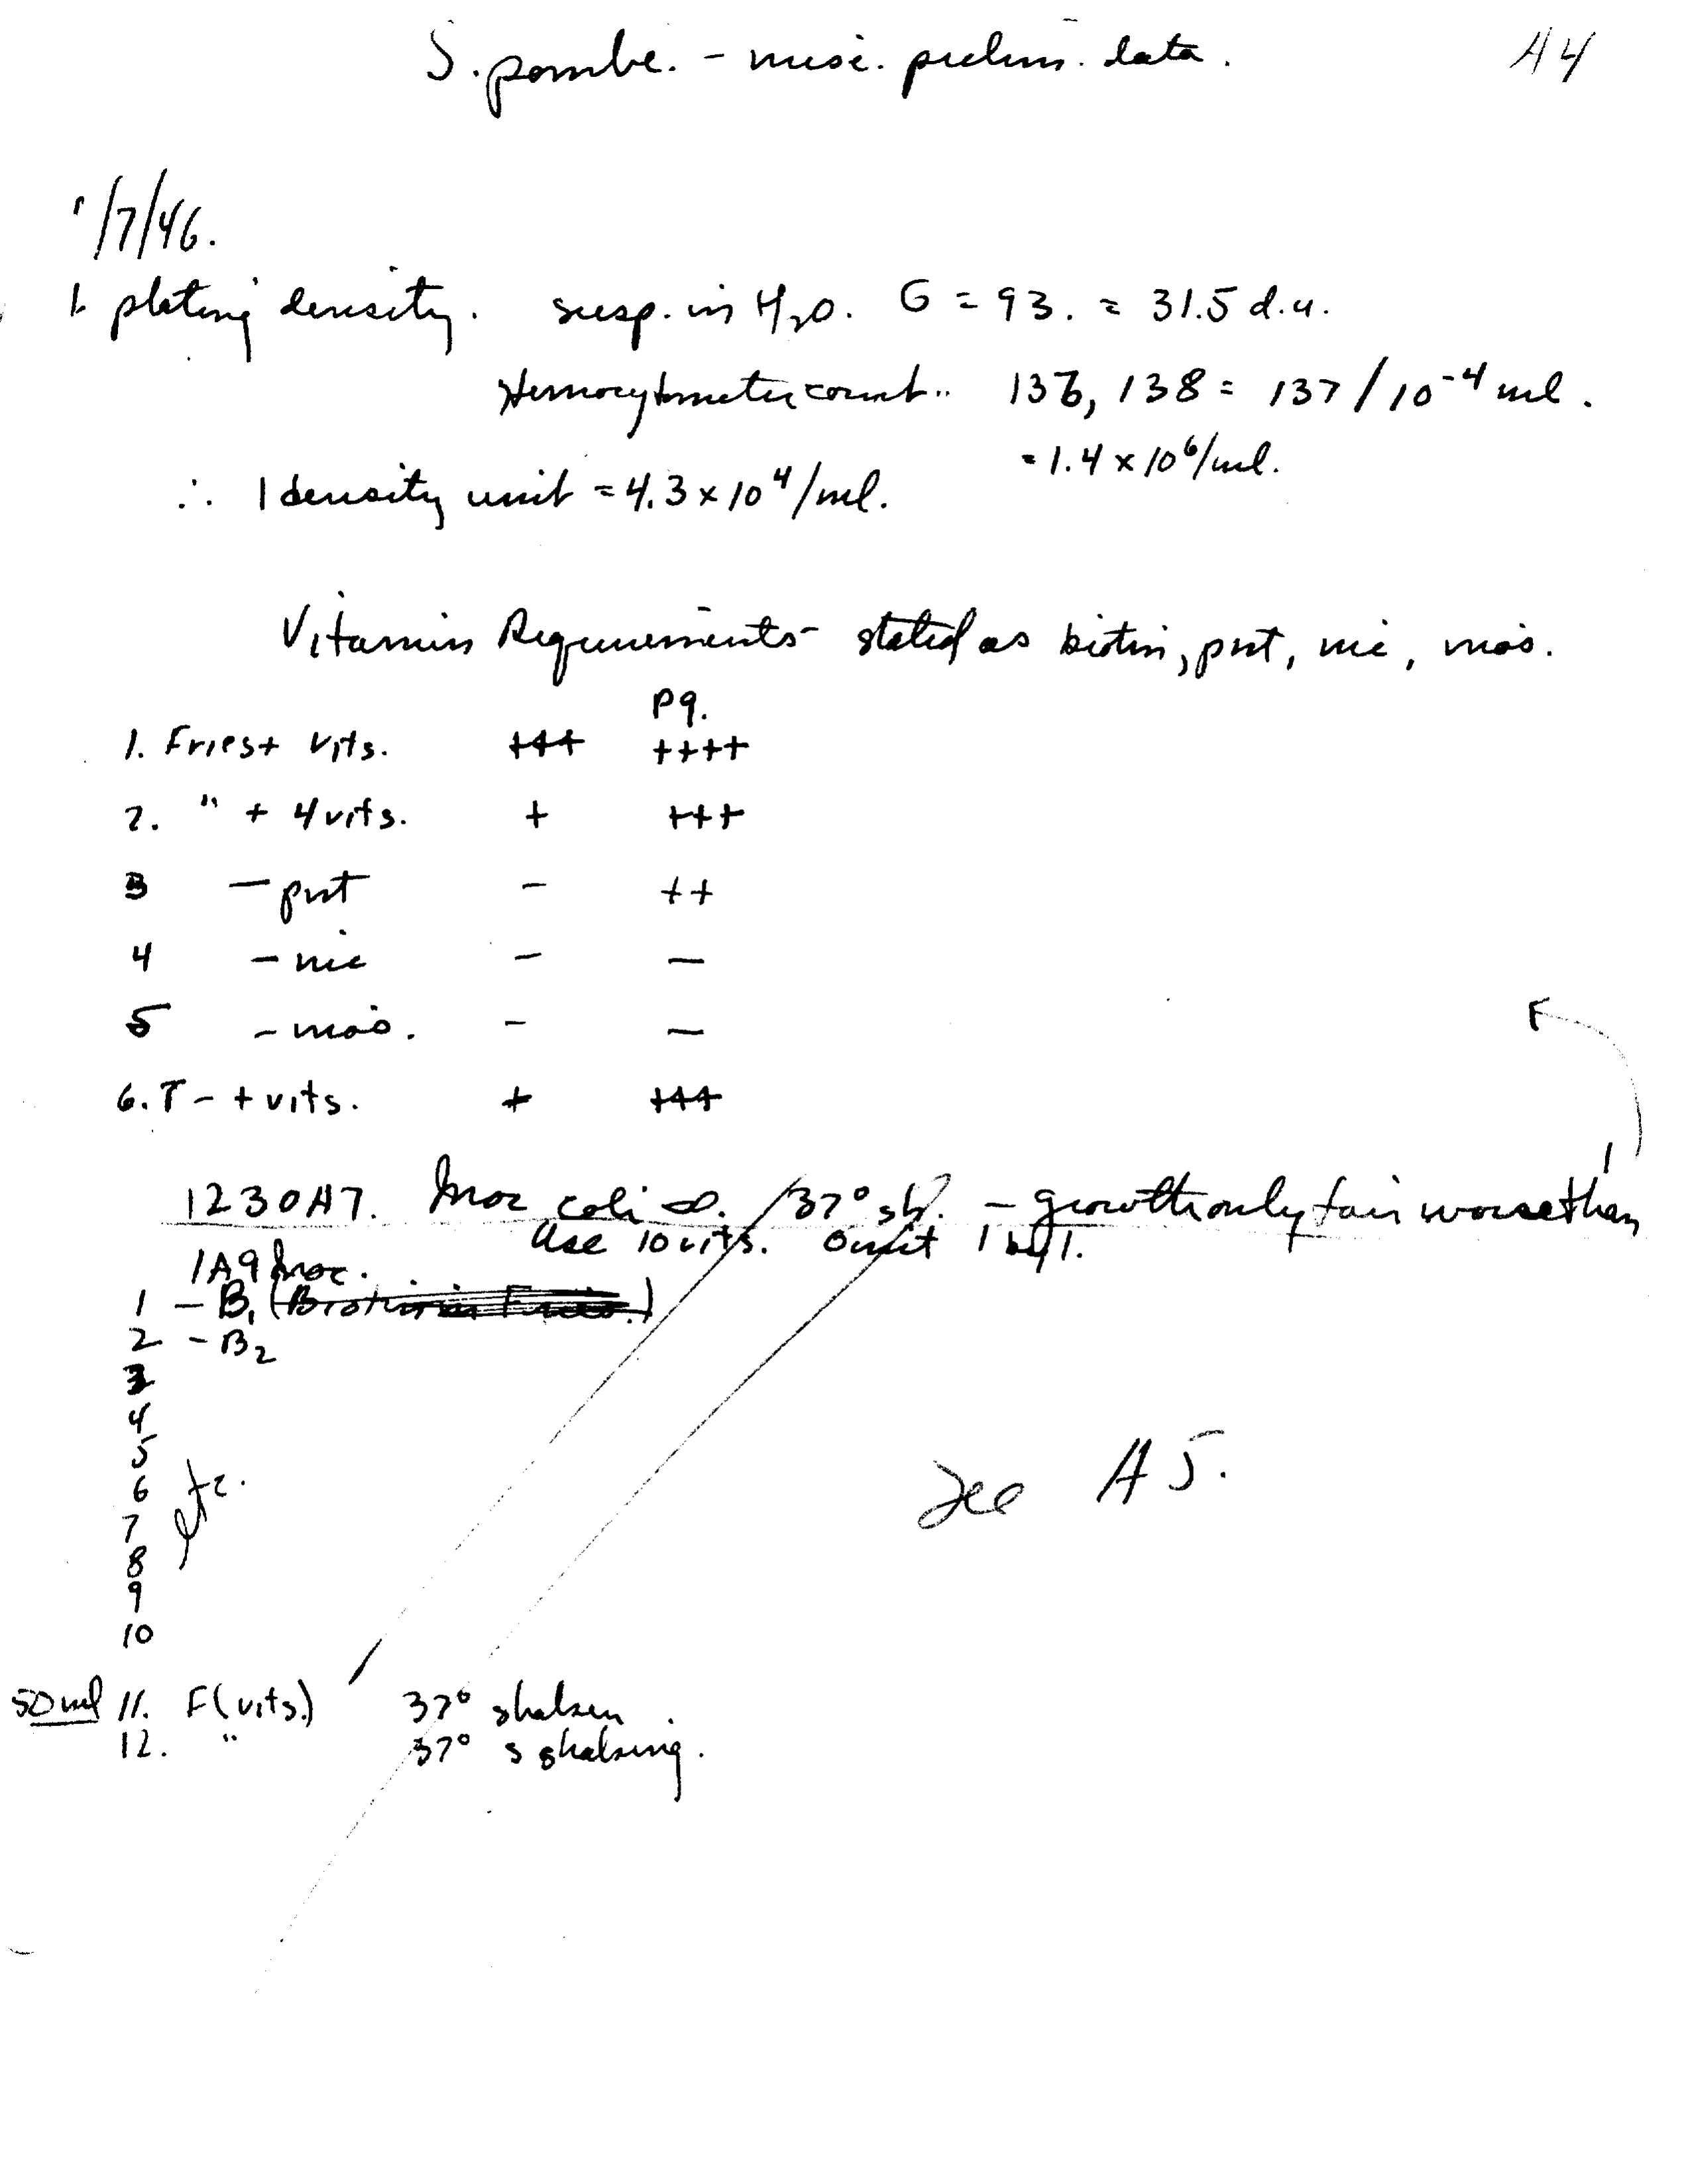 S. pombe. - misc. prelim. data.
A4
1/7/46.
1. plating density. susp. in H2O. G = 93. = 31.5 d.u.
Hemocytometer count.. 136, 138 = 137 / 10⁻⁴ ml.
= 1.4 x 10⁶/ml.
∴ 1 density unit = 4.3 x 10⁴/ml.
Vitamin Requirements stated as biotin, pnt, nic, inos.
P9.
1. Fries + vits. +++ ++++
2. " + 4 vits. + +++
3 - pnt - ++
4 - nic - —
5 - inos. - —
6. T - + vits. + +++
1230A7. Inoc coli . 37° sh. - growth only fair worse than
F
Use 10 vits. Omit 1 by 1.
1A9 Inoc.
1 - B₁
2 - B₂
3
4
5
6 etc.
7
8
9
10
50 ml 11. F (vits.) 37° shaken
12. " 37° s shaking.
see A5.